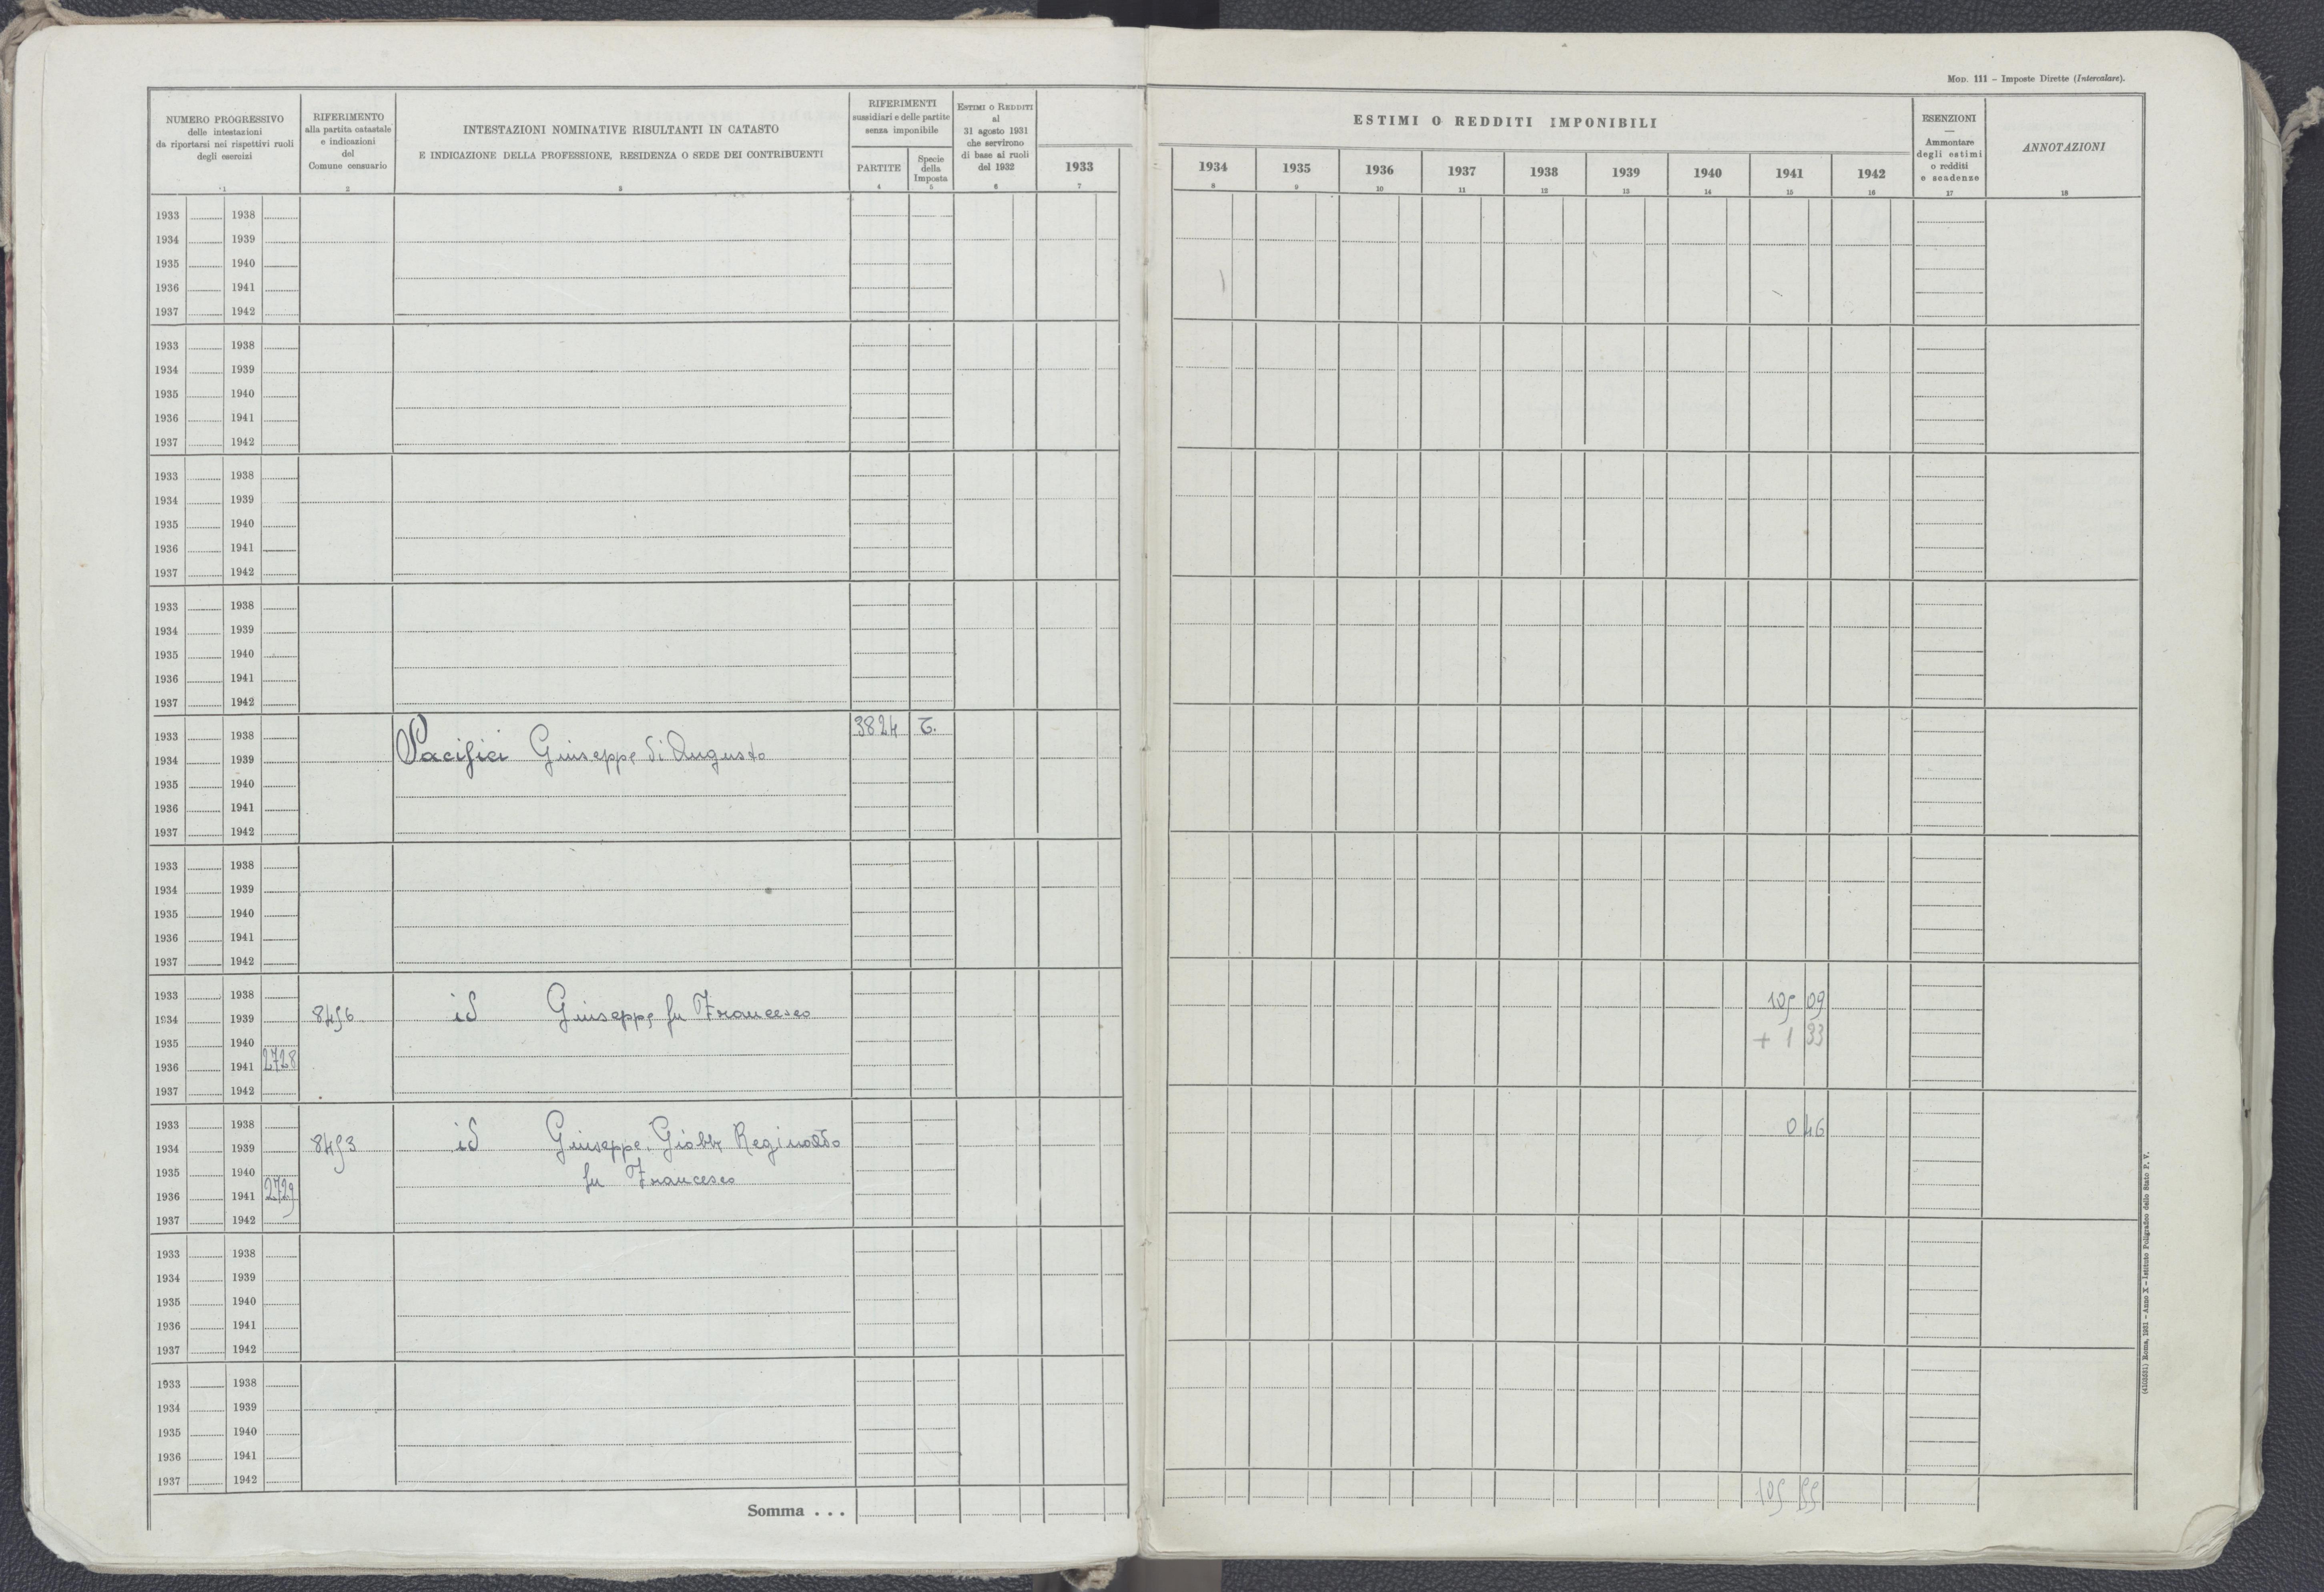 Mod. 111 – Imposte Dirette (Intercalare).
NUMERO PROGRESSIVO
delle intestazioni
da riportarsi nei rispettivi ruoli
degli esercizi
1
RIFERIMENTO
alla partita catastale
e indicazioni
del
Comune censuario
2
INTESTAZIONI NOMINATIVE RISULTANTI IN CATASTO
E INDICAZIONE DELLA PROFESSIONE, RESIDENZA O SEDE DEI CONTRIBUENTI
3
RIFERIMENTI
sussidiari e delle partite
senza imponibile
PARTITE
4
Specie
della
Imposta
5
Estimi o Redditi
al
31 agosto 1931
che servirono
di base ai ruoli
del 1932
6
1933
7
ESTIMI O REDDITI IMPONIBILI
1934 1935 1936 1937 1938 1939 1940 1941 1942
8 9 10 11 12 13 14 15 16
ESENZIONI
—
Ammontare
degli estimi
o redditi
e scadenze
17
ANNOTAZIONI
18
1933 1938
1934 1939
1935 1940
1936 1941
1937 1942
1933 1938
1934 1939
1935 1940
1936 1941
1937 1942
1933 1938
1934 1939
1935 1940
1936 1941
1937 1942
1933 1938
1934 1939
1935 1940
1936 1941
1937 1942
1933 1938 3824 T.
1934 1939 Pacifici Giuseppe di Augusto
1935 1940
1936 1941
1937 1942
1933 1938
1934 1939
1935 1940
1936 1941
1937 1942
1933 1938 109 09
1934 1939 8496 id Giuseppe fu Francesco
1935 1940 + 1 33
1936 1941 2728
1937 1942
1933 1938 0 46
1934 1939 8493 id Giuseppe, Giobbe, Reginaldo
1935 1940 fu Francesco
1936 1941 2729
1937 1942
1933 1938
1934 1939
1935 1940
1936 1941
1937 1942
1933 1938
1934 1939
1935 1940
1936 1941
1937 1942
Somma . . . 109 55
(4103531) Roma, 1931 – Anno X – Istituto Poligrafico dello Stato P. V.